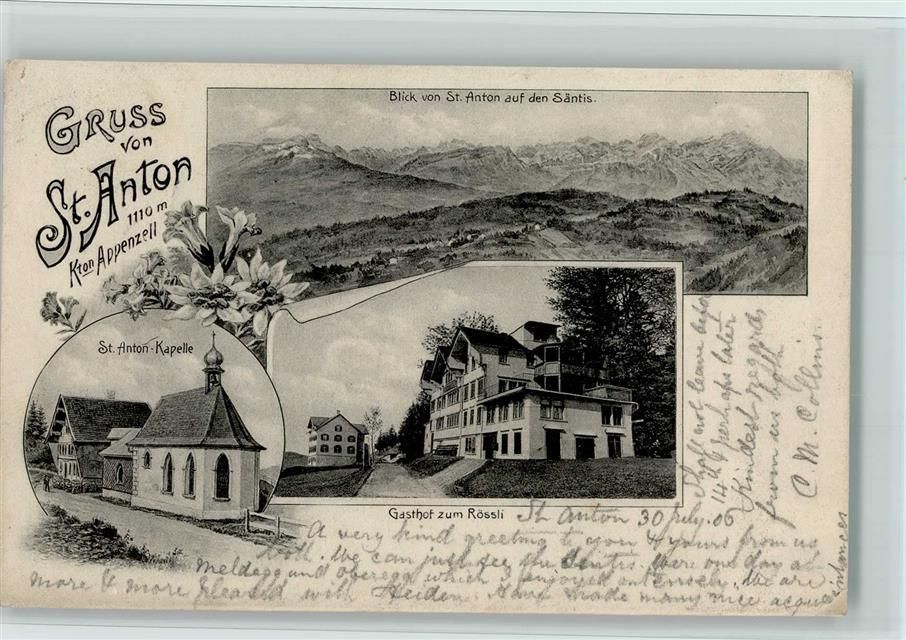 Gruss
von
St. Anton
1110 m
Kton Appenzell
Blick von St. Anton auf den Säntis.
St. Anton-Kapelle
Gasthof zum Rössli
St Anton 30 July. 06
A very kind greeting to you & yours from us
both. We can just see the Sentis. Were one day at
Meldegg and Oberegg which I enjoyed immensely. We are
more & more pleased with Heiden. Have made many nice acqua
intances
Shall not leave before
14th perhaps later
Kindest regards
from us both
C. M. Collins.